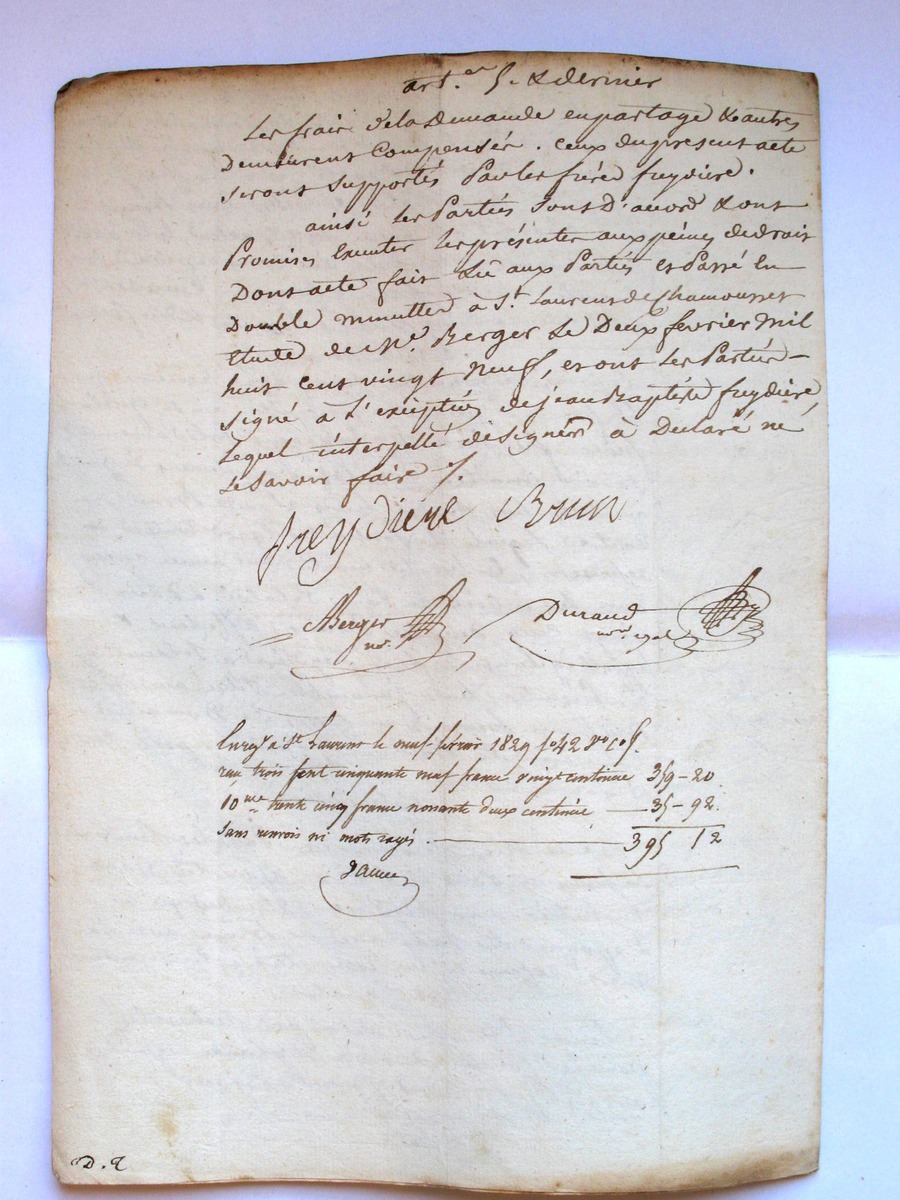 art. en 5. & dernier
Les frais de la Demande en partage & autres
Demeurent Compensés. ceux du present acte
seront supportés Par les frére freydiere.
ainsi les Parties sont D'acord & ont
Promis Exécuter les présentes aux peines de droit
Dont acte fait Lû aux Parties et Passé En
Double minutte à St. Laurent de Chamousset
Etude de Me. Berger Le Deux fevrier mil
huit cent vingt Neuf, et ont les Parties
signé à L'exception de jean Baptiste freydiere,
Lequel interpellé de signer à Declaré né
Le savoir faire /.
freydiere Brun
Berger
nre.
Durand
nre.
Enregé à St Laurent le neuf février 1829 fo 42 Vo Co 5.
reçu trois cent cinquante neuf francs vingt centimes 359-20
10me trente cinq francs nonante deux centimes 35-92.
sans renvois ni mots rayés. 395 12
D. 2